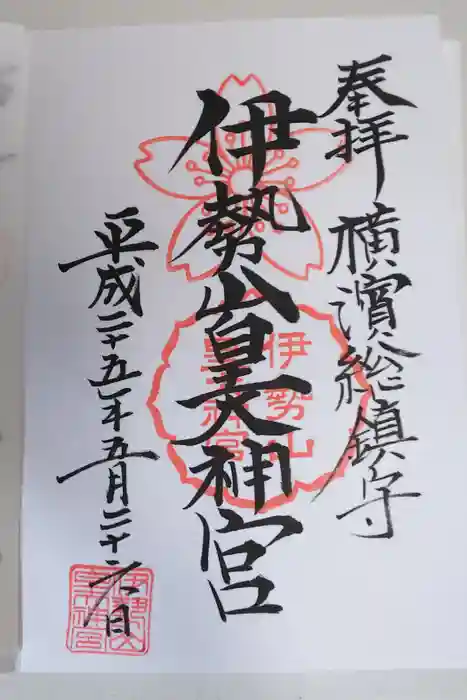 奉拝 横濱総鎮守
伊勢山皇大神宮
伊勢山
皇大神宮
平成二十五年五月二十六日